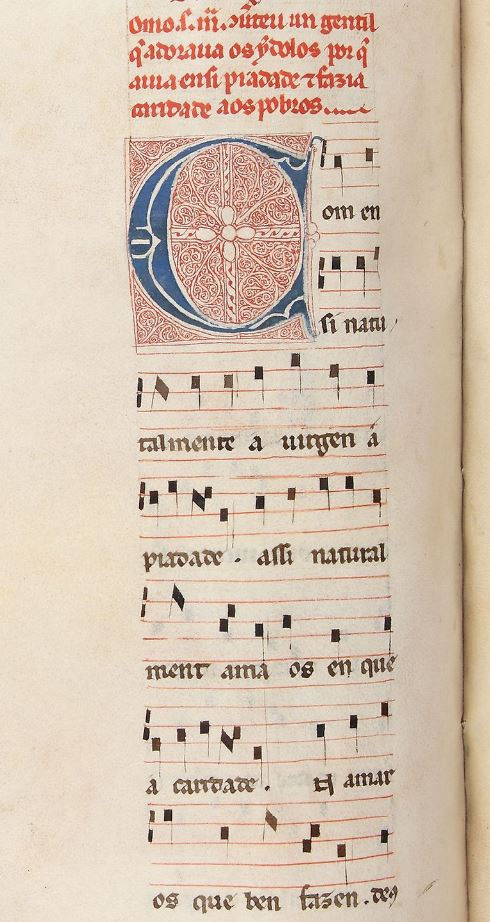 omo.s.m̃.ꝯũteu un gentil
q̃ adoraua os ydolos por q̃
auia en si piadade ⁊ fazia
caridade aos pobros.
C
om en
si natu
ralmente a uirgen á
piadade . assi natural
ment ama os en que
á caridade . E amar
os que ben fazen . de9